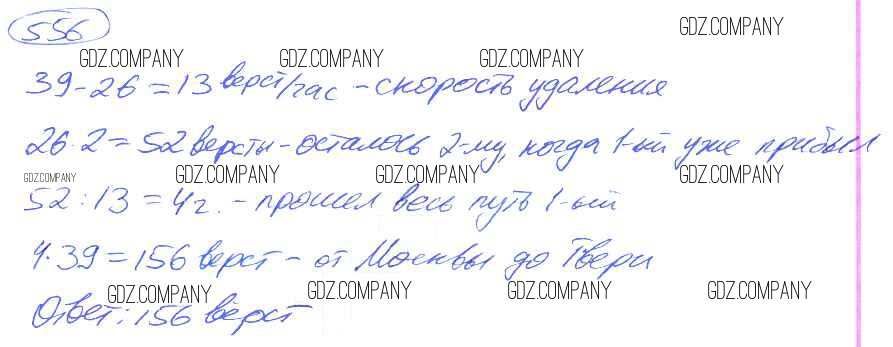 556
GDZ.COMPANY
GDZ.COMPANY GDZ.COMPANY GDZ.COMPANY
39-26=13 верст/час - скорость удаления
26·2=52 версты - осталось 2-му, когда 1-ый уже прибыл
GDZ.COMPANY GDZ.COMPANY GDZ.COMPANY GDZ.COMPANY
52:13=4 г. - прошел весь путь 1-ый
4·39=156 верст - от Москвы до Твери
GDZ.COMPANY GDZ.COMPANY GDZ.COMPANY GDZ.COMPANY
Ответ: 156 вёрст